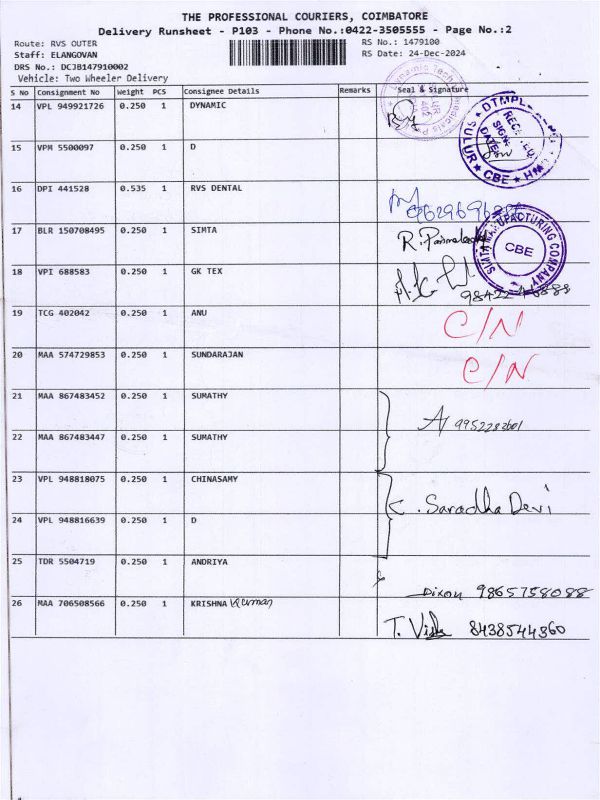 THE PROFESSIONAL COURIERS, COIMBATORE
Delivery Runsheet - P103 - Phone No.:0422-3505555 - Page No.:2
Route: RVS OUTER RS No.: 1479100
Staff: ELANGOVAN RS Date: 24-Dec-2024
DRS No.: DCJB147910002
Vehicle: Two Wheeler Delivery
S No Consignment No Weight PCS Consignee Details Remarks Seal & Signature
14 VPL 949921726 0.250 1 DYNAMIC
15 VPM 5500097 0.250 1 D
CBE
16 DPI 441528 0.535 1 RVS DENTAL
17 BLR 150708495 0.250 1 SIMTA
SIMTA MANUFACTURING COMPANY
CBE
18 VPI 688583 0.250 1 GK TEX
19 TCG 402042 0.250 1 ANU C/N
20 MAA 574729853 0.250 1 SUNDARAJAN C/N
21 MAA 867483452 0.250 1 SUMATHY
22 MAA 867483447 0.250 1 SUMATHY
23 VPL 948818075 0.250 1 CHINASAMY
C. Saradha Devi
24 VPL 948816639 0.250 1 D
25 TDR 5504719 0.250 1 ANDRIYA
Dixon 9865758088
26 MAA 706508566 0.250 1 KRISHNA Kumar
8438544360